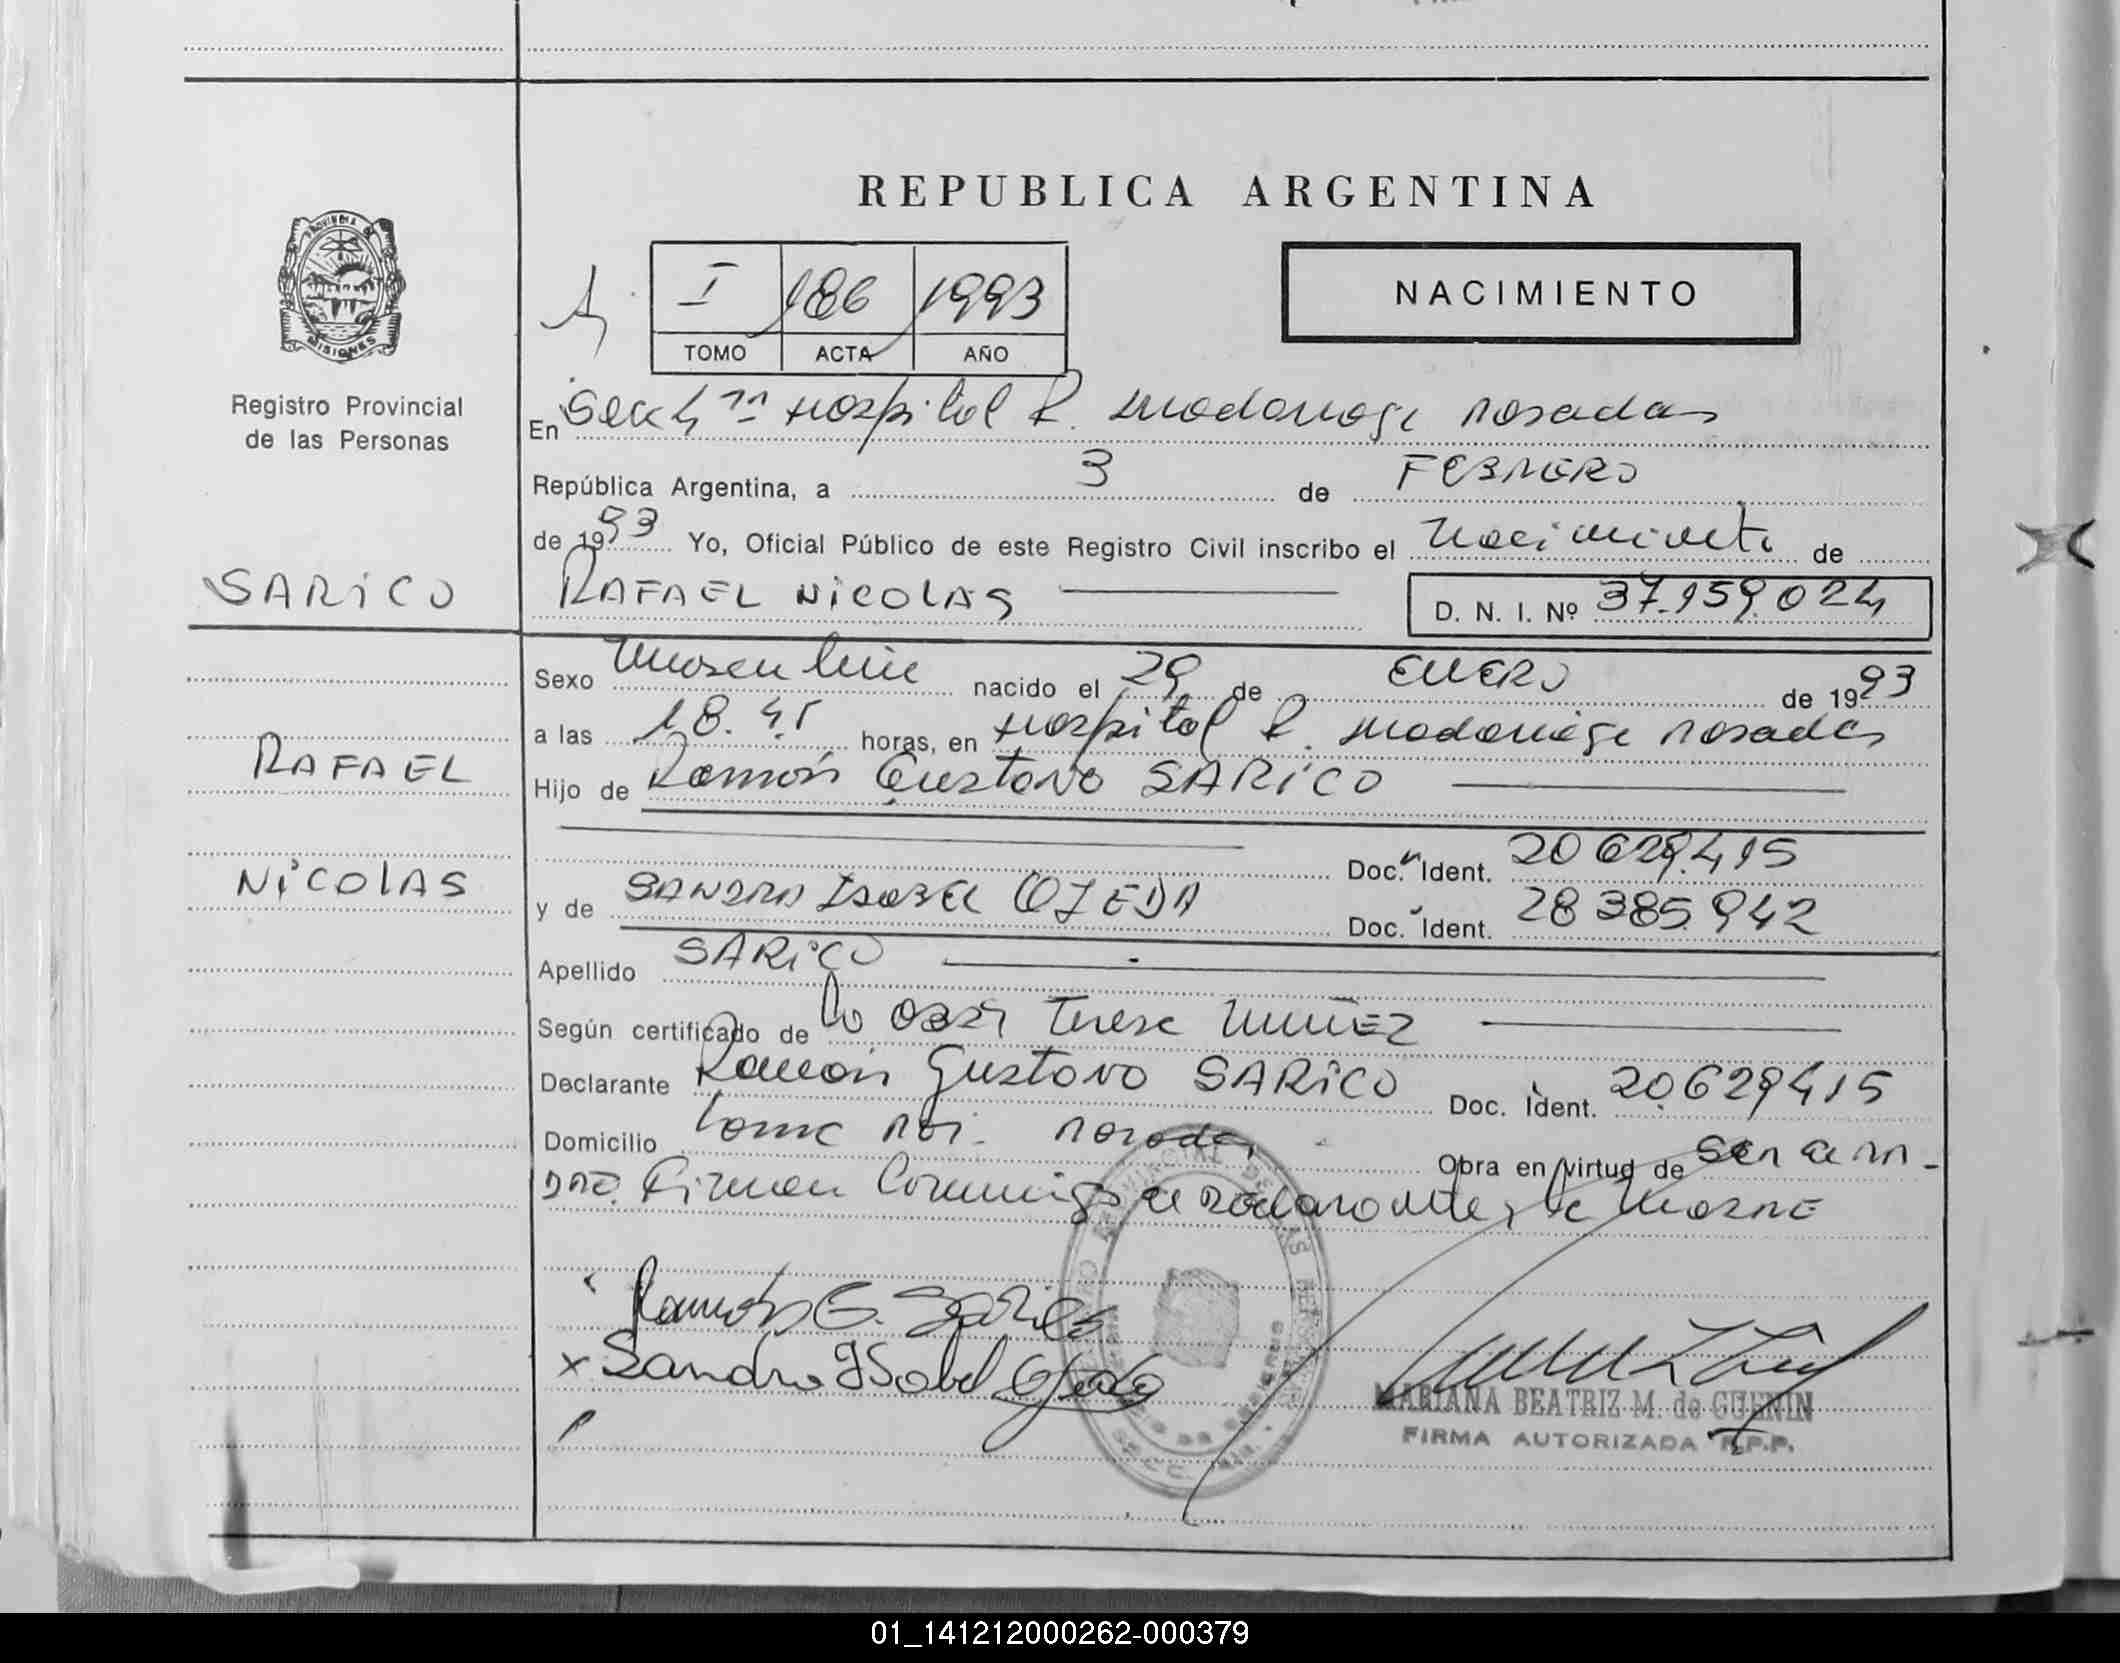 REPUBLICA ARGENTINA
PROVINCIA DE MISIONES
I 186 1993
TOMO ACTA AÑO
NACIMIENTO
Registro Provincial
de las Personas
En Secc 4ta Hospital R. Madariaga Posadas
República Argentina, a 3 de FEBRERO
de 1993 Yo, Oficial Público de este Registro Civil inscribo el Nacimiento de
SARICO
RAFAEL NICOLAS D. N. I. Nº 37.159.024
Sexo Masculino nacido el 29 de ENERO de 1993
a las 18.45 horas, en Hospital R. Madariaga Posadas
RAFAEL
Hijo de Ramón Gustavo SARICO
Doc. Ident. 20 629.415
NICOLAS
y de SANDRA Isabel OJEDA Doc. Ident. 28 385.942
Apellido SARICO
Según certificado de la Obst Teresa NUÑEZ
Declarante Ramón Gustavo SARICO Doc. Ident. 20.629415
Domicilio Posadas Obra en virtud de
DRE. Firman Conmigo el Declarante y la Madre
Ramón G. Sarico
x Sandra ISabel Ojeda
MARIANA BEATRIZ M. de GUENIN
FIRMA AUTORIZADA R.P.P.
01_141212000262-000379